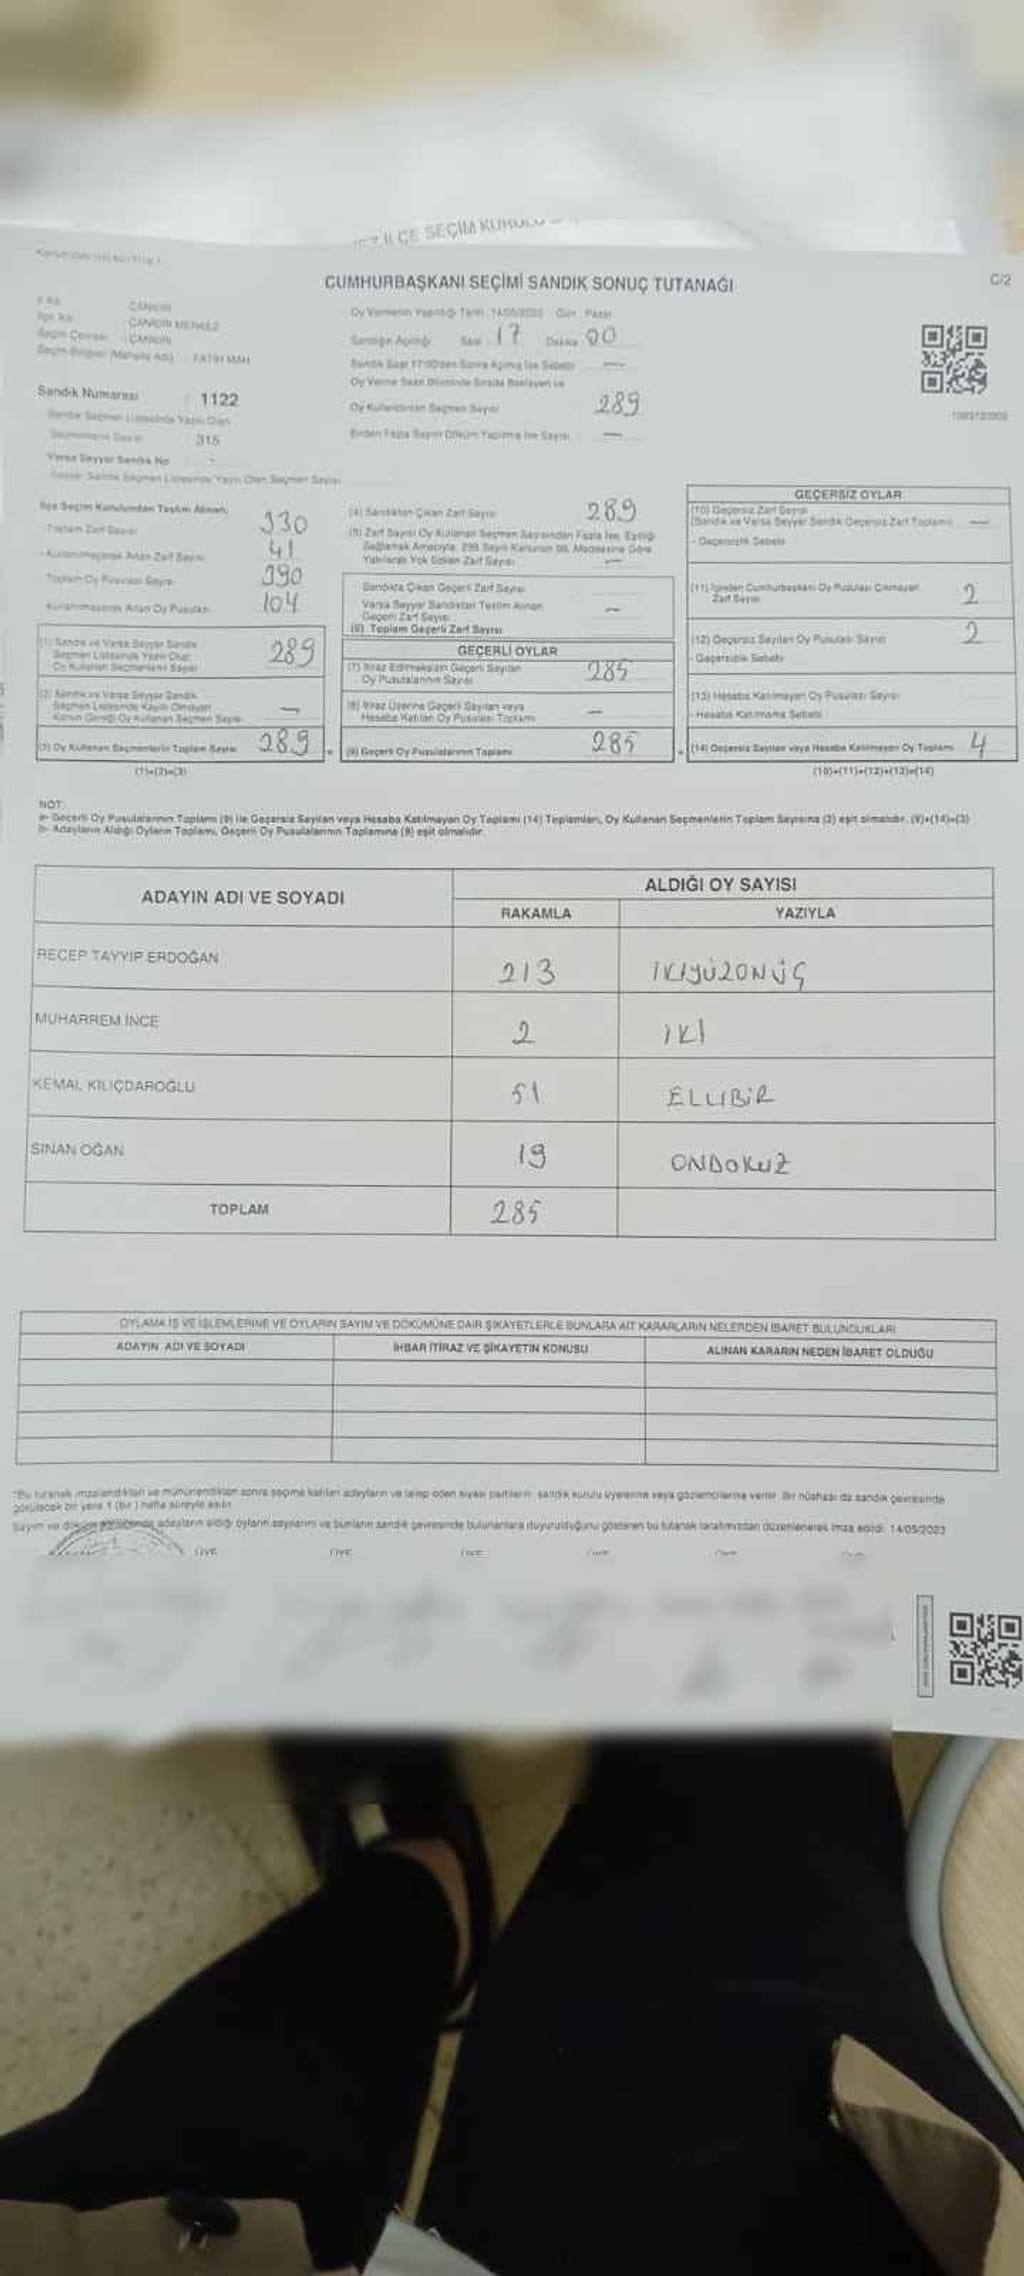 İLÇE SEÇİM KURULU
CUMHURBAŞKANI SEÇİMİ SANDIK SONUÇ TUTANAĞI
C/2
İl Adı : ÇANKIRI
İlçe Adı : ÇANKIRI MERKEZ
Seçim Çevresi : ÇANKIRI
Seçim Bölgesi (Mahalle Adı) : FATİH MAH.
Sandık Numarası : 1122
Sandık Seçmen Listesinde Yazılı Olan
Seçmenlerin Sayısı : 315
Varsa Seyyar Sandık No : -
Seyyar Sandık Seçmen Listesinde Yazılı Olan Seçmen Sayısı
Oy Vermenin Yapıldığı Tarih: 14/05/2023 Gün: Pazar
Sandığın Açıldığı Saat 17 Dakika 00
Sandık Saat 17:00'den Sonra Açılmış İse Sebebi : —
Oy Verme Saati Bitiminde Sırada Bekleyen ve
Oy Kullandırılan Seçmen Sayısı : 289
Birden Fazla Sayım Döküm Yapılmış İse Sayısı : —
İlçe Seçim Kurulundan Teslim Alınan;
Toplam Zarf Sayısı 330
- Kullanılmayarak Artan Zarf Sayısı 41
Toplam Oy Pusulası Sayısı 390
- Kullanılmayarak Artan Oy Pusulası 104
(1) Sandık ve Varsa Seyyar Sandık
Seçmen Listesinde Yazılı Olup
Oy Kullanan Seçmenlerin Sayısı 289
(2) Sandık ve Varsa Seyyar Sandık
Seçmen Listesinde Kayıtlı Olmayan
Kanun Gereği Oy Kullanan Seçmen Sayısı —
(3) Oy Kullanan Seçmenlerin Toplam Sayısı 289
(1)+(2)=(3)
(4) Sandıktan Çıkan Zarf Sayısı 289
(5) Zarf Sayısı Oy Kullanan Seçmen Sayısından Fazla İse, Eşitliği
Sağlamak Amacıyla, 298 Sayılı Kanunun 98. Maddesine Göre
Yakılarak Yok Edilen Zarf Sayısı —
Sandıkta Çıkan Geçerli Zarf Sayısı
Varsa Seyyar Sandıktan Teslim Alınan
Geçerli Zarf Sayısı —
(6) Toplam Geçerli Zarf Sayısı
GEÇERLİ OYLAR
(7) İtiraz Edilmeksizin Geçerli Sayılan
Oy Pusulalarının Sayısı 285
(8) İtiraz Üzerine Geçerli Sayılan veya
Hesaba Katılan Oy Pusulası Toplamı —
(9) Geçerli Oy Pusulalarının Toplamı 285
GEÇERSİZ OYLAR
(10) Geçersiz Zarf Sayısı
(Sandık ve Varsa Seyyar Sandık Geçersiz Zarf Toplamı) —
- Geçersizlik Sebebi
(11) İçinden Cumhurbaşkanı Oy Pusulası Çıkmayan
Zarf Sayısı 2
(12) Geçersiz Sayılan Oy Pusulası Sayısı 2
- Geçersizlik Sebebi
(13) Hesaba Katılmayan Oy Pusulası Sayısı
- Hesaba Katılmama Sebebi
(14) Geçersiz Sayılan veya Hesaba Katılmayan Oy Toplamı 4
(10)+(11)+(12)+(13)=(14)
NOT:
a- Geçerli Oy Pusulalarının Toplamı (9) ile Geçersiz Sayılan veya Hesaba Katılmayan Oy Toplamı (14) Toplamları, Oy Kullanan Seçmenlerin Toplam Sayısına (3) eşit olmalıdır. (9)+(14)=(3)
b- Adayların Aldığı Oyların Toplamı, Geçerli Oy Pusulalarının Toplamına (9) eşit olmalıdır.
ADAYIN ADI VE SOYADI
ALDIĞI OY SAYISI
RAKAMLA YAZIYLA
RECEP TAYYİP ERDOĞAN 213 İKİYÜZONÜÇ
MUHARREM İNCE 2 İKİ
KEMAL KILIÇDAROĞLU 51 ELLİBİR
SİNAN OĞAN 19 ONDOKUZ
TOPLAM 285
OYLAMA İŞ VE İŞLEMLERİNE VE OYLARIN SAYIM VE DÖKÜMÜNE DAİR ŞİKAYETLERLE BUNLARA AİT KARARLARIN NELERDEN İBARET BULUNDUKLARI
ADAYIN ADI VE SOYADI İHBAR İTİRAZ VE ŞİKAYETİN KONUSU ALINAN KARARIN NEDEN İBARET OLDUĞU
*Bu tutanak imzalandıktan ve mühürlendikten sonra seçime katılan adayların ve talep eden siyasi partilerin sandık kurulu üyelerine veya gözlemcilerine verilir. Bir nüshası da sandık çevresinde
görülecek bir yere 1 (bir) hafta süreyle asılır.
Sayım ve döküm neticesinde adayların aldığı oyların sayılarını ve bunların sandık çevresinde bulunanlara duyurulduğunu gösteren bu tutanak tarafımızdan düzenlenerek imza edildi. 14/05/2023
ÜYE ÜYE ÜYE ÜYE ÜYE